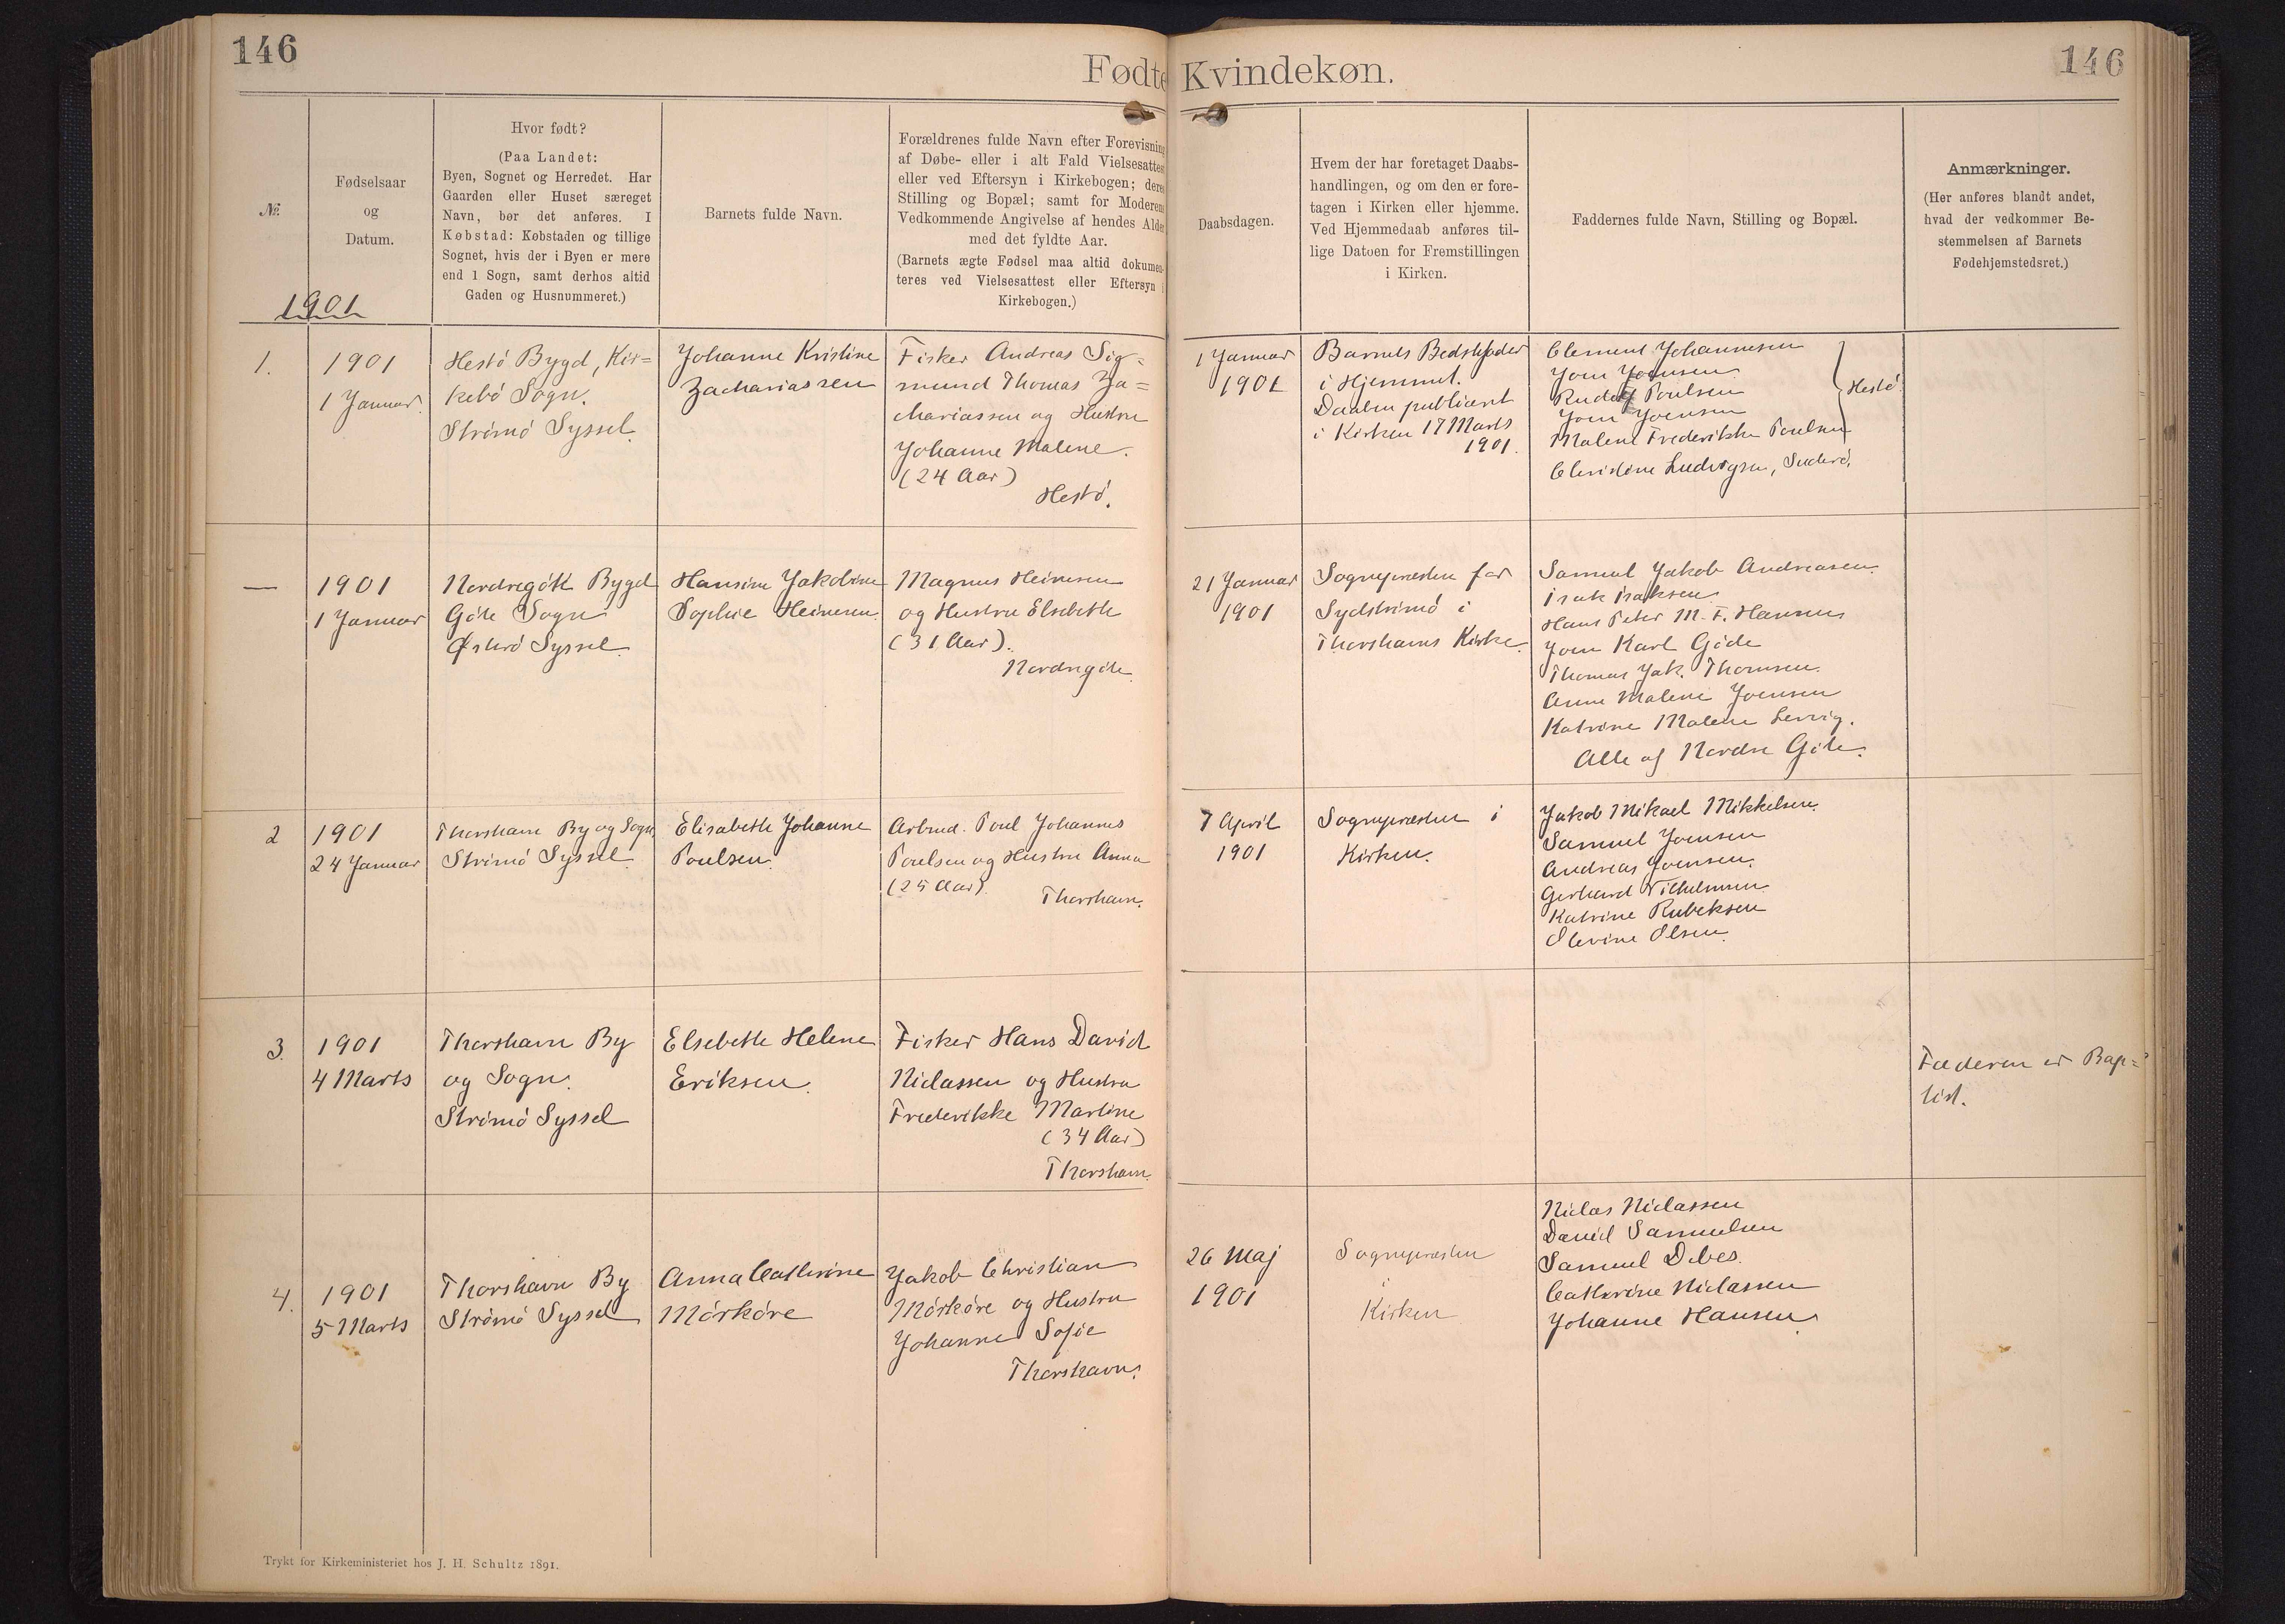 146
Fødte Kvindekøn.
146
№
Fødselsaar
og
Datum.
Hvor født?
(Paa Landet:
Byen, Sognet og Herredet. Har
Gaarden eller Huset særeget
Navn, bør det anføres. I
Købstad: Købstaden og tillige
Sognet, hvis der i Byen er mere
end 1 Sogn, samt derhos altid
Gaden og Husnummeret.)
Barnets fulde Navn.
Forældrenes fulde Navn efter Forevisning
af Døbe- eller i alt Fald Vielsesattest
eller ved Eftersyn i Kirkebogen; deres
Stilling og Bopæl; samt for Moderens
Vedkommende Angivelse af hendes Alder
med det fyldte Aar.
(Barnets ægte Fødsel maa altid dokumen-
teres ved Vielsesattest eller Eftersyn i
Kirkebogen.)
Daabsdagen.
Hvem der har foretaget Daabs-
handlingen, og om den er fore-
tagen i Kirken eller hjemme.
Ved Hjemmedaab anføres til-
lige Datoen for Fremstillingen
i Kirken.
Faddernes fulde Navn, Stilling og Bopæl.
Anmærkninger.
(Her anføres blandt andet,
hvad der vedkommer Be-
stemmelsen af Barnets
Fødehjemstedsret.)
1901
1.
1901
1 Januar.
Hestö Bygd, Kir=
kebö Sogn.
Strömö Syssel.
Johanne Kristine
Zachariassen
Fisker Andreas Sig=
mund Thomas Za=
chariassen og Hustru
Johanne Malene.
(24 Aar)
Hestö.
1 Januar
1901
Barnets Bedstefader
i Hjemmet.
Daaben publiceret
i Kirken 17 Marts
1901.
Clement Johannesen
Joen Joensen
Rudolf Poulsen
Joen Joensen
Malene Frederikke Poulsen
Hestö
Christine Ludvigsen, Suderö.
—
1901
1 Januar
Nordregöte Bygd
Göte Sogn
Østerö Syssel
Hansine Jakobine
Sophie Heinesen
Magnus Heinesen
og Hustru Elsebeth
(31 Aar).
Nordregöte.
21 Januar
1901
Sognepræsten for
Sydströmö i
Thorshavns Kirke.
Samuel Jakob Andreasen.
Isak Isaksen
Hans Peter M. F. Hansen
Joen Karl Göte
Thomas Jak. Thomsen.
Anne Malene Joensen
Katrine Malene Lervig.
Alle af Nordre Göte.
2
1901
24 Januar
Thorshavn By og Sogn
Strömö Syssel
Elisabeth Johanne
Poulsen
Arbmd. Poul Johannes
Poulsen og Hustru Anna
(25 Aar).
Thorshavn.
7 April
1901
Sognepræsten i
Kirken.
Jakob Mikael Mikkelsen.
Samuel Joensen
Andreas Joensen.
Gerhard Vilhelmsen
Katrine Rubeksen
Olevine Olsen
3.
1901
4 Marts
Thorshavn By
og Sogn.
Strömö Syssel
Elsebeth Helene
Eriksen.
Fisker Hans David
Niclassen og Hustru
Frederikke Martine
(34 Aar)
Thorshavn.
Faderen er Bap=
tist.
4.
1901
5 Marts
Thorshavn By
Strömö Syssel
Anna Cathrine
Mörköre
Jakob Christian
Mörköre og Hustru
Johanne Sofie
Thorshavn.
26 Maj
1901
Sognepræsten
i
Kirken
Niclas Niclassen
David Samuelsen
Samuel Debes.
Cathrine Niclassen
Johanne Hansen.
Trykt for Kirkeministeriet hos J. H. Schultz 1891.